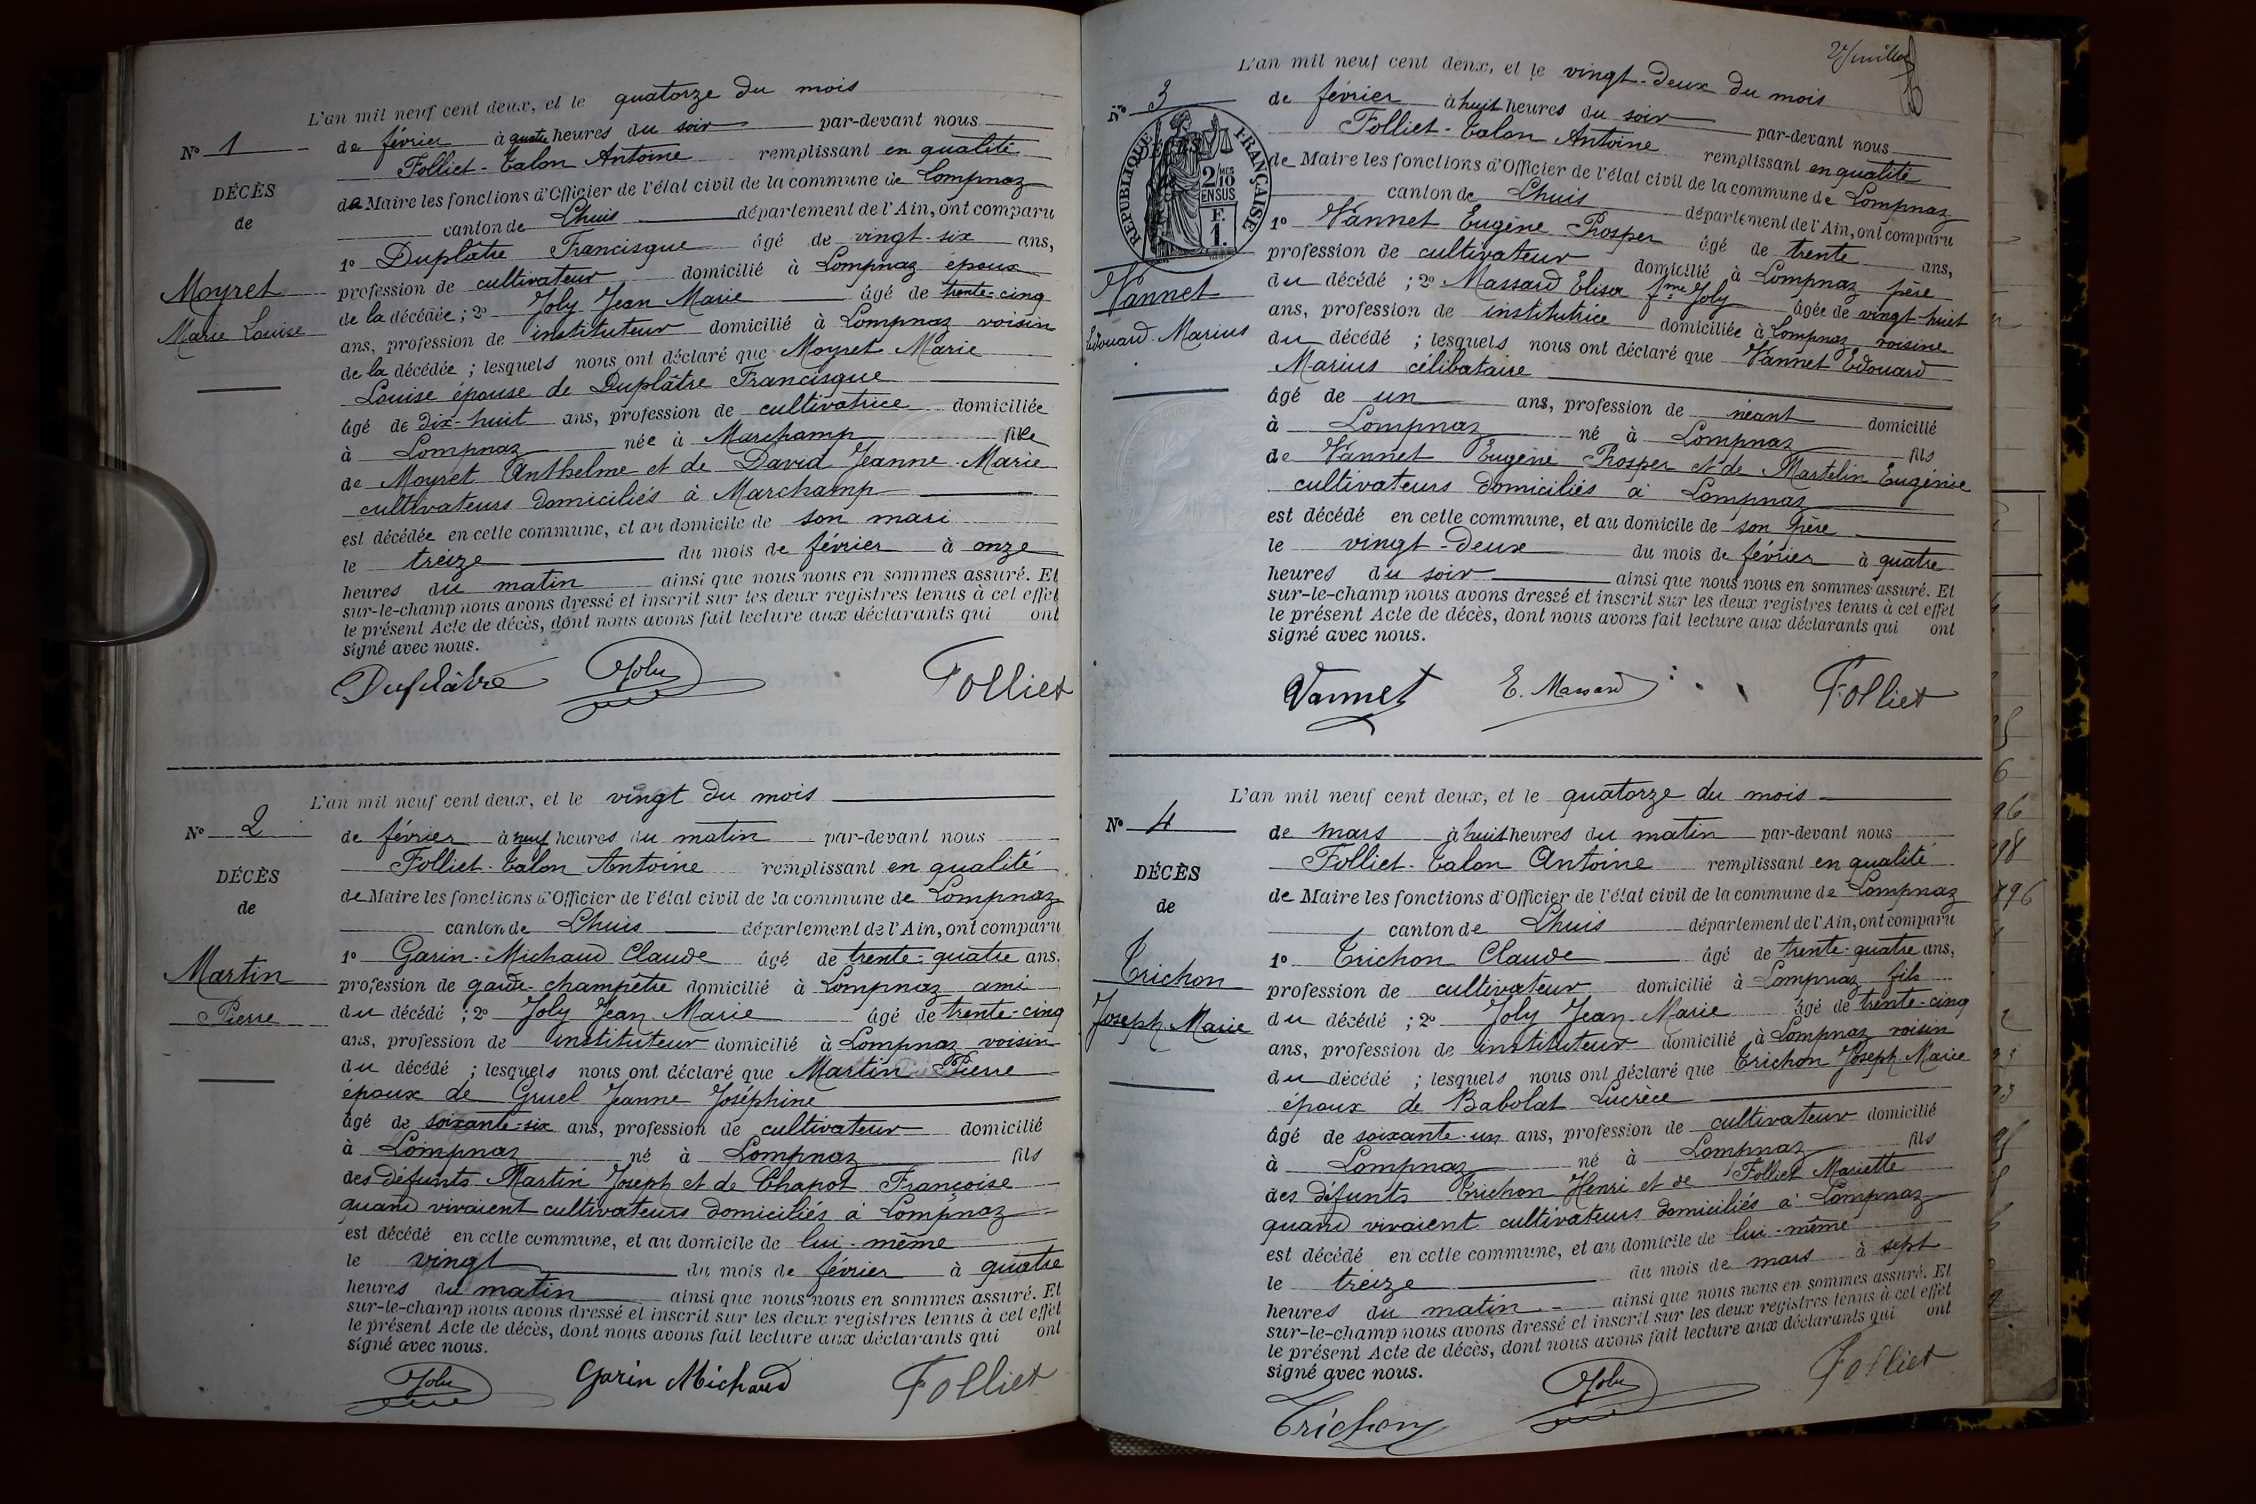 L'an mil neuf cent deux, et le quatorze du mois
Nº 1
de février à quatre heures du soir par-devant nous
Folliet-Talon Antoine remplissant en qualité
DÉCÈS
de
de Maire les fonctions d'Officier de l'état civil de la commune de Lompnaz
canton de Lhuis département de l'Ain, ont comparu
1º Duplâtre Francisque âgé de vingt-six ans,
Moyret
Marie Louise
profession de cultivateur domicilié à Lompnaz époux
de la décédée ; 2º Joly Jean Marie âgé de trente-cinq
ans, profession de instituteur domicilié à Lompnaz voisin
de la décédée ; lesquels nous ont déclaré que Moyret Marie
Louise épouse de Duplâtre Francisque
âgé de dix-huit ans, profession de cultivatrice domiciliée
à Lompnaz née à Marchamp fille
de Moyret Anthelme et de David Jeanne-Marie
cultivateurs domiciliés à Marchamp
est décédée en cette commune, et au domicile de son mari
le treize du mois de février à onze
heures du matin ainsi que nous nous en sommes assuré. Et
sur-le-champ nous avons dressé et inscrit sur les deux registres tenus à cet effet
le présent Acte de décès, dont nous avons fait lecture aux déclarants qui ont
signé avec nous.
Duplâtre Joly Folliet
L'an mil neuf cent deux, et le vingt du mois
Nº 2
de février à neuf heures du matin par-devant nous
Folliet-Talon Antoine remplissant en qualité
DÉCÈS
de
de Maire les fonctions d'Officier de l'état civil de la commune de Lompnaz
canton de Lhuis département de l'Ain, ont comparu
1º Garin-Michaud Claude âgé de trente-quatre ans,
Martin
Pierre
profession de garde-champêtre domicilié à Lompnaz ami
du décédé ; 2º Joly Jean-Marie âgé de trente-cinq
ans, profession de instituteur domicilié à Lompnaz voisin
du décédé ; lesquels nous ont déclaré que Martin Pierre
époux de Gruel Jeanne Joséphine
âgé de soixante-six ans, profession de cultivateur domicilié
à Lompnaz né à Lompnaz fils
des défunts Martin Joseph et de Chapot Françoise
quand vivaient cultivateurs domiciliés à Lompnaz
est décédé en cette commune, et au domicile de lui-même
le vingt du mois de février à quatre
heures du matin ainsi que nous nous en sommes assuré. Et
sur-le-champ nous avons dressé et inscrit sur les deux registres tenus à cet effet
le présent Acte de décès, dont nous avons fait lecture aux déclarants qui ont
signé avec nous.
Joly Garin Michaud Folliet
L'an mil neuf cent deux, et le vingt-deux du mois
Nº 3
de février à huit heures du soir par-devant nous
Folliet-Talon Antoine remplissant en qualité
RÉPUBLIQUE FRANÇAISE
2/10 MES EN SUS
F. 1.
de Maire les fonctions d'Officier de l'état civil de la commune de Lompnaz
canton de Lhuis département de l'Ain, ont comparu
1º Vannet Eugène Prosper âgé de trente ans,
Vannet
Edouard-Marius
profession de cultivateur domicilié à Lompnaz père
du décédé ; 2º Massard Elisa fme Joly âgée de vingt-huit
ans, profession de institutrice domiciliée à Lompnaz voisine
du décédé ; lesquels nous ont déclaré que Vannet Edouard
Marius célibataire
âgé de un ans, profession de néant domicilié
à Lompnaz né à Lompnaz fils
de Vannet Eugène Prosper et de Martelin Eugénie
cultivateurs domiciliés à Lompnaz
est décédé en cette commune, et au domicile de son père
le vingt-deux du mois de février à quatre
heures du soir ainsi que nous nous en sommes assuré. Et
sur-le-champ nous avons dressé et inscrit sur les deux registres tenus à cet effet
le présent Acte de décès, dont nous avons fait lecture aux déclarants qui ont
signé avec nous.
Vannet E. Massard Folliet
L'an mil neuf cent deux, et le quatorze du mois
Nº 4
de mars à huit heures du matin par-devant nous
Folliet-Talon Antoine remplissant en qualité
DÉCÈS
de
de Maire les fonctions d'Officier de l'état civil de la commune de Lompnaz
canton de Lhuis département de l'Ain, ont comparu
1º Trichon Claude âgé de trente-quatre ans,
Trichon
Joseph-Marie
profession de cultivateur domicilié à Lompnaz fils
du décédé ; 2º Joly Jean-Marie âgé de trente-cinq
ans, profession de instituteur domicilié à Lompnaz voisin
du décédé ; lesquels nous ont déclaré que Trichon Joseph-Marie
époux de Babolat Lucrèce
âgé de soixante-un ans, profession de cultivateur domicilié
à Lompnaz né à Lompnaz fils
des défunts Trichon Henri et de Folliet Mariette
quand vivaient cultivateurs domiciliés à Lompnaz
est décédé en cette commune, et au domicile de lui-même
le treize du mois de mars à sept
heures du matin ainsi que nous nous en sommes assuré. Et
sur-le-champ nous avons dressé et inscrit sur les deux registres tenus à cet effet
le présent Acte de décès, dont nous avons fait lecture aux déclarants qui ont
signé avec nous.
Trichon Joly Folliet